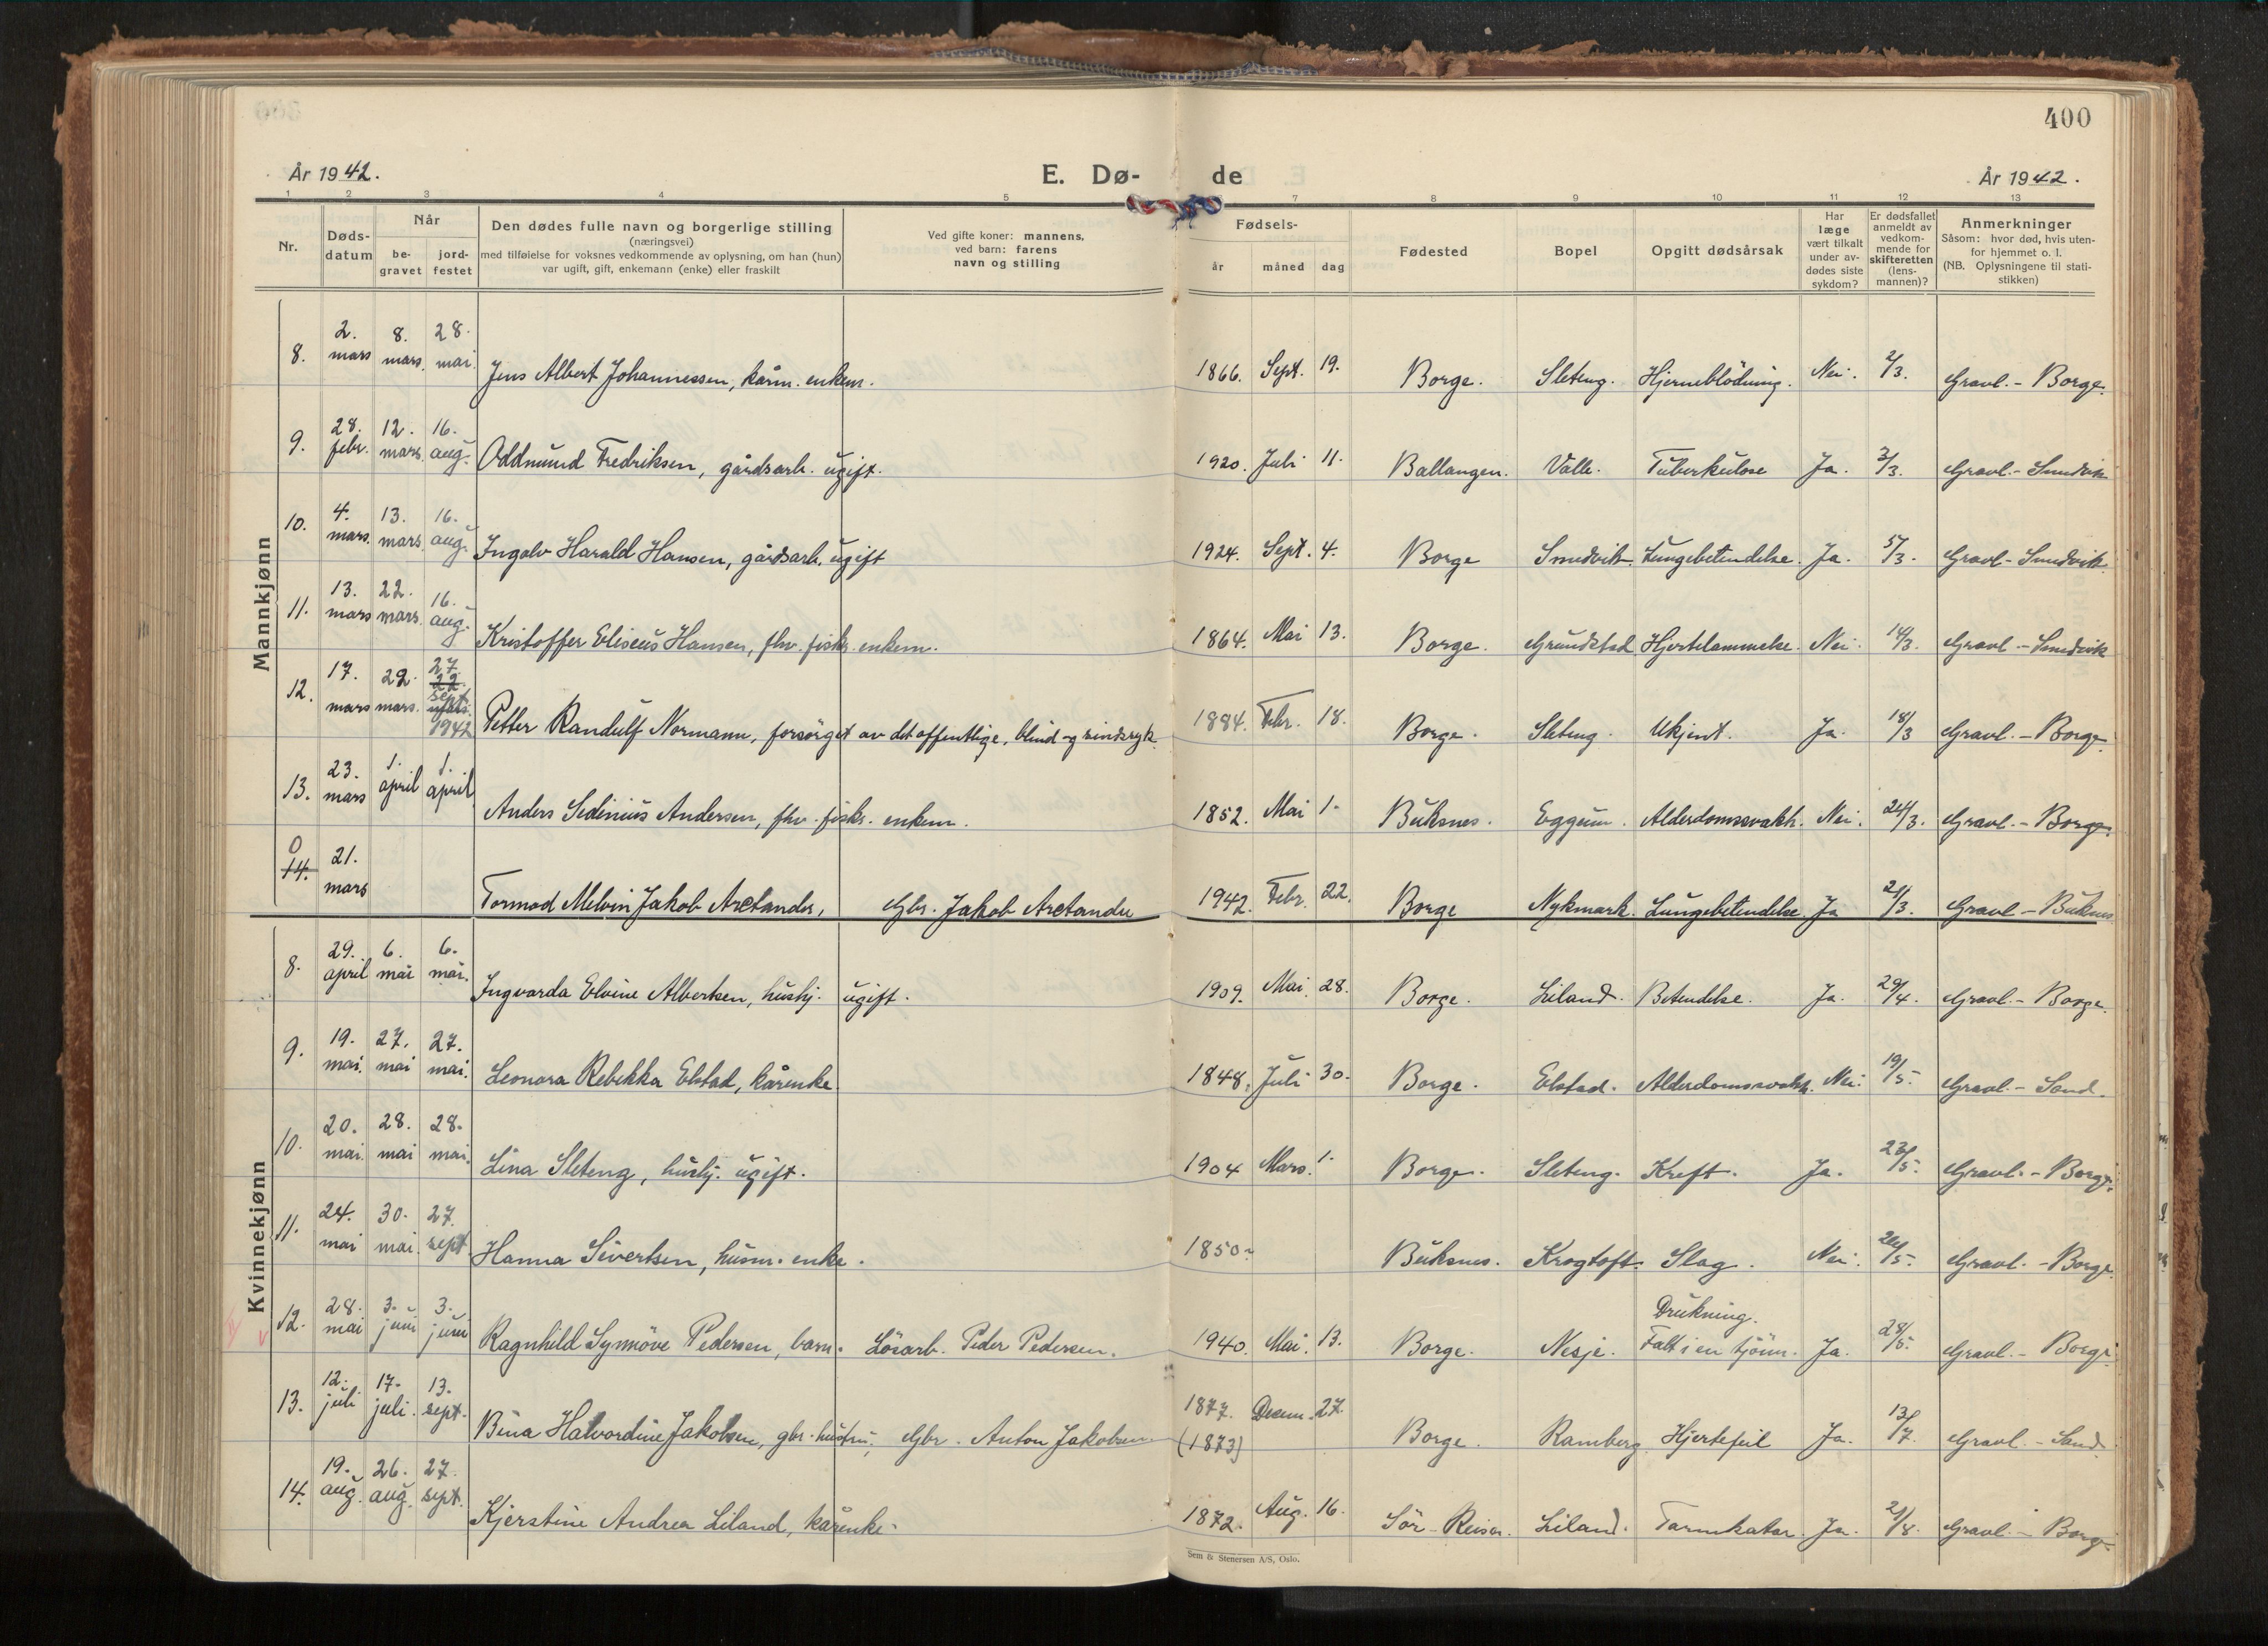 400
År 1942.
E. Dø- de
År 1942.
1 2 3 4 5 7 8 9 10 11 12 13
Nr.
Døds-
datum
Når
be-
gravet
jord-
festet
Den dødes fulle navn og borgerlige stilling
(næringsvei)
med tilføielse for voksnes vedkommende av oplysning, om han (hun)
var ugift, gift, enkemann (enke) eller fraskilt
Ved gifte koner: mannens,
ved barn: farens
navn og stilling
Fødsels-
år måned dag
Fødested
Bopel
Opgitt dødsårsak
Har
læge
vært tilkalt
under av-
dødes siste
sykdom?
Er dødsfallet
anmeldt av
vedkom-
mende for
skifteretten
(lens-
mannen)?
Anmerkninger
Såsom: hvor død, hvis uten-
for hjemmet o. l.
(NB. Oplysningene til stati-
stikken)
Mannkjønn
8. 2. mars 8. mars. 28. mai. Jens Albert Johannessen, kårm. enkem. 1866. Sept. 19. Borge. Sleteng. Hjerneblödning. Nei. 2/3. Gravl. - Borge.
9. 28. febr. 12. mars. 16. aug. Oddmund Fredriksen, gårdsarb. ugift. 1920. Juli 11. Ballangen. Valle. Tuberkulose Ja. 3/3. Gravl. - Smedvik
10. 4. mars. 13. mars. 16. aug. Ingolv Harald Hansen, gårdsarb. ugift 1924. Sept. 4. Borge Smedvik. Lungebetendelse. Ja. 5/3. Gravl - Smedvik.
11. 13. mars 22. mars. 16. aug. Kristoffer Eliseus Hansen, fhv. fisker. enkem. 1864. Mai 13. Borge. Grundstad Hjertelammelse. Nei. 14/3. Gravl - Smedvik
12. 17. mars 29. mars. 27. 22. sept 1942 Petter Randulf Normann, forsörget av det offentlige, blind og sindssyk. 1884. Febr. 18. Borge. Sleteng. Ukjent. Ja. 18/3 Gravl. - Borge.
13. 23. mars 1. april 1. april Anders Sedinius Andersen, fhv. fisker. enkem. 1852. Mai 1. Buksnes. Eggum. Alderdomssvakh. Nei. 24/3. Gravl. - Borge.
0
14. 21. mars Tormod Melvin Jakob Arctander, Gbr. Jakob Arctander 1942. Febr. 22. Borge Nykmark. Lungebetendelse. Ja 21/3. Gravl - Buksnes
Kvinnekjønn
8. 29. april 6. mai 6. mai. Ingvarda Elvine Albertsen, hushj. ugift. 1909. Mai. 28. Borge. Liland. Betendelse. Ja. 29/4. Gravl. - Borge.
9. 19. mai. 27. mai 27. mai. Leonora Rebekka Elstad, kårenke. 1848. Juli 30. Borge. Elstad. Alderdomssvakh. Nei. 19/5. Gravl. - Sand.
10. 20. mai. 28. mai 28. mai. Lina Sleteng, hushj. ugift. 1904 Mars. 1. Borge. Sleteng. Kreft. Ja. 23/5. Gravl. - Borge.
11. 24. mai 30. mai. 27. sept Hanna Sivertsen, husm. enke. 1850 Buksnes. Krogtoft. Slag. Nei. 26/5. Gravl. - Borge.
12. 28. mai 3. juni 3. juni Ragnhild Synnöve Pedersen, barn. Lösarb. Peder Pedersen. 1940. Mai. 13. Borge. Nesje. Drukning. Falt i en tjönn. Ja. 28/5. Gravl. - Borge.
13. 12. juli 17. juli. 13. sept. Bina Halvordine Jakobsen, gbr. hustru, Gbr. Anton Jakobsen 1877. (1873) Decem. 27. Borge. Ramberg. Hjertefeil Ja. 13/7. Gravl. - Sand.
14. 19. aug. 26. aug. 27. sept. Kjerstine Andrea Liland, kårenke. 1872. Aug. 16. Sör-Reisen. Liland. Tarmkatar. Ja. 21/8. Gravl. - Borge.
Sem & Stenersen A/S, Oslo.